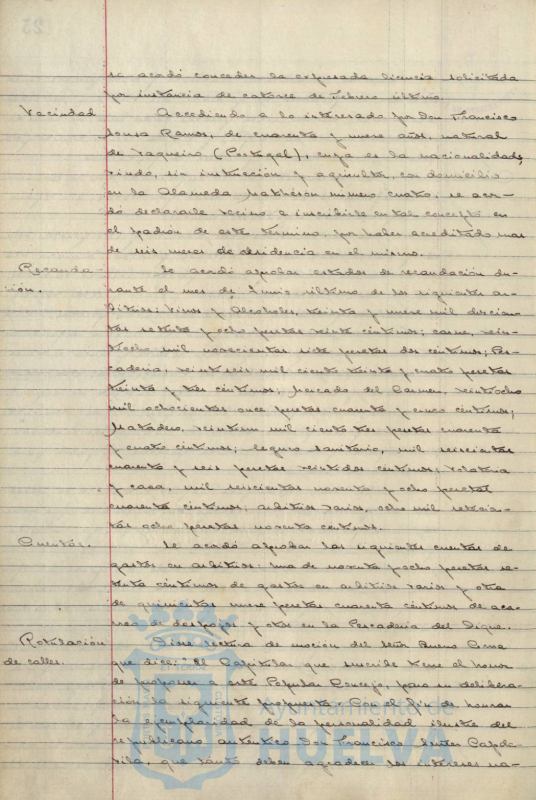 se acodó conceder la expresada licencia solicitada
por instancia de catorce de Febrero último.
Vecindad Accediendo a lo interesado por Don Francisco
Sousa Ramos, de cuarenta y nueve años, natural
de Vaqueiro (Portugal), cuya es la nacionalidad,
viudo, sin instrucción y agricultor, con domicilio
en la Alameda Mathesón número cuatro, se acor-
dó declararle vecino e inscribirle en tal concepto en
el padrón de este término, por haber acreditado mas
de seis meses de residencia en el mismo.
Recauda- Se acordó aprobar estados de recaudación du-
ción. rante el mes de Junio último de los siguientes ar-
bitrios: Vinos y Alcoholes, treinta y nueve mil doscien-
tas setenta y ocho pesetas veinte céntimos; carne, vein-
tiocho mil novecientas siete pesetas dos céntimos; Pes-
cadería, veintiseis mil ciento treinta y cuatro pesetas
treinta y tres céntimos; Mercado del Carmen, veintiocho
mil ochocientas once pesetas cuarenta y cinco céntimos;
Matadero, veintiun mil ciento tres pesetas cuarenta
y cuatro céntimos; seguro sanitario, mil seiscientas
cuarenta y seis pesetas veintidos céntimos; volatería
y caza, mil seiscientas noventa y ocho pesetas
cuarenta céntimos; arbitrios varios, ocho mil setecien-
tas ocho pesetas noventa céntimos.
Cuentas. Se acordó aprobar las siguientes cuentas de
gastos en arbitrios: una de noventa y ocho pesetas se-
tenta céntimos de gastos en arbitrios varios y otra
de quinientas nueve pesetas cuarenta céntimos de aca-
rreo de despojos y otros en la Pescadería del Dique.
Rotulación Diose lectura de moción del Señor Bueno Cerna
de calles. que dice: "El Capitular que suscribe tiene el honor
de proponer a este Popular Concejo, para su delibera-
ción la siguiente propuesta: Con el fin de honrar
la ejemplaridad de la personalidad ilustre del
republicano auténtico Don Francisco
que tanto deben agradecer los intereses na-
Ayuntamiento de
HUELVA